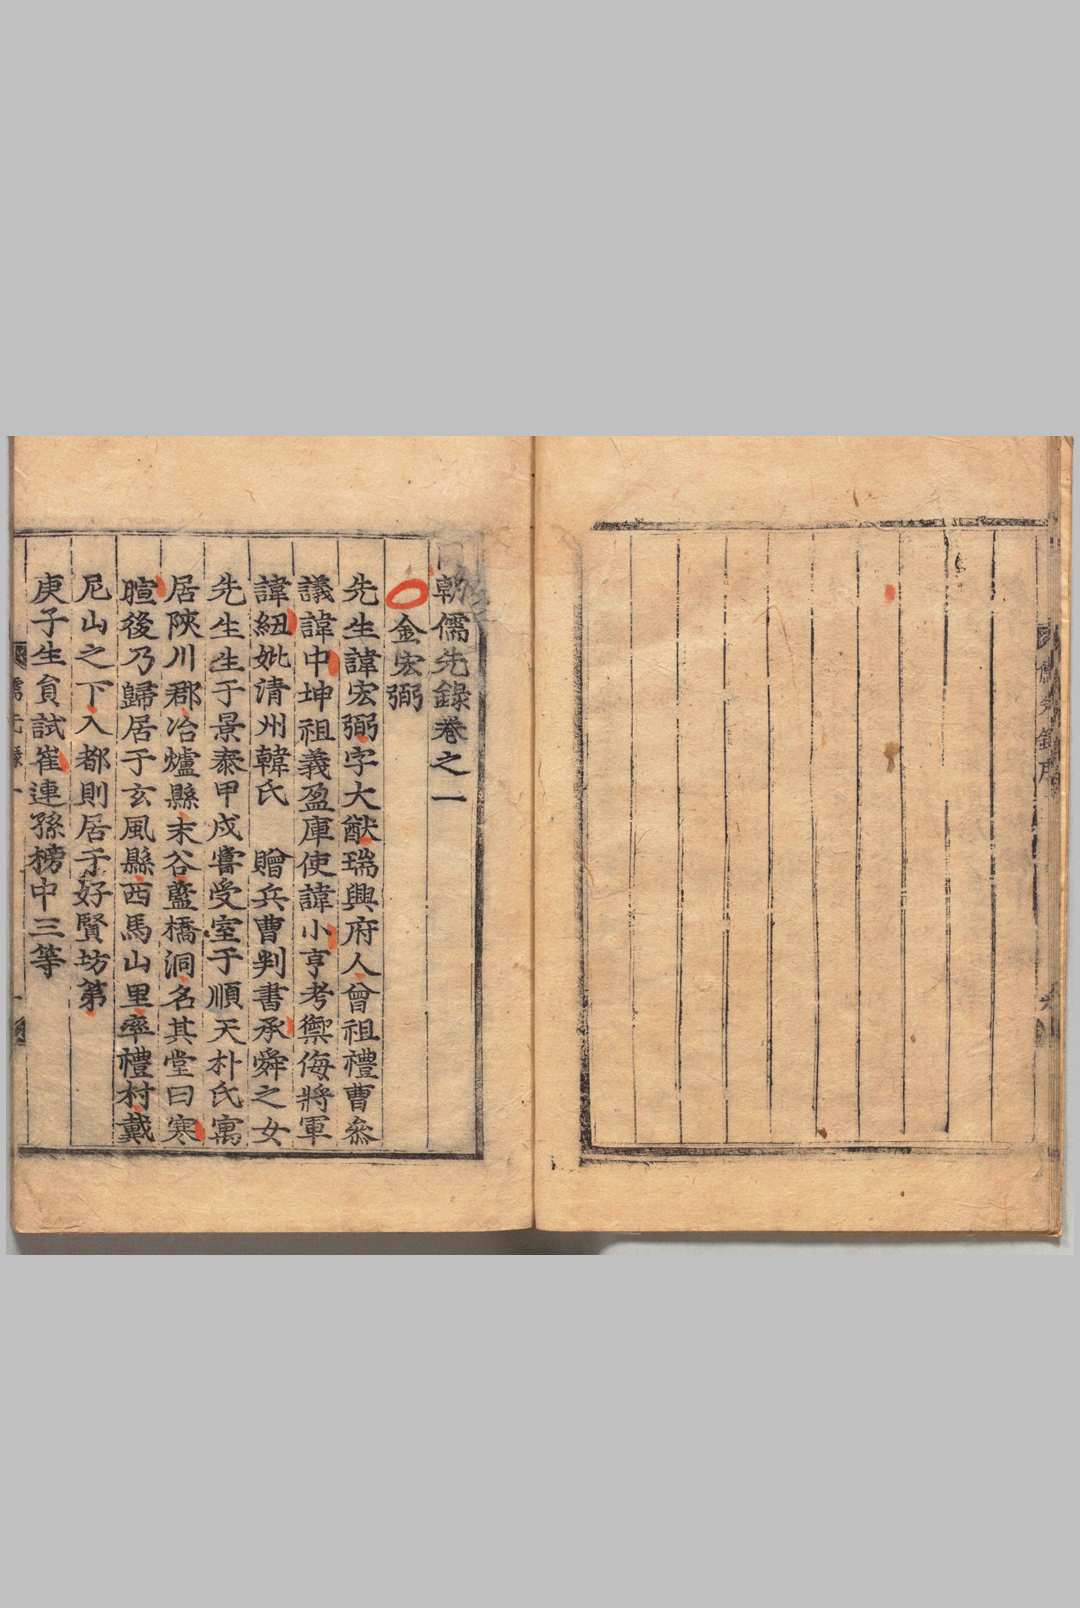 儒先錄序
朝儒先錄卷之一
金宏弼
先生諱宏弼字大猷瑞興府人曾祖禮曹叅
議諱中坤祖義盈庫使諱小亨考禦侮將軍
諱紐妣淸州韓氏 贈兵曹判書承舜之女
先生生于景泰甲戌嘗受室于順天朴氏寓
居陜川郡冶爐縣末谷藍橋洞名其堂曰寒
暄後乃歸居于玄風縣西馬山里率禮村戴
尼山之下入都則居于好賢坊第
庚子生貟試崔連孫榜中三等
儒先錄一